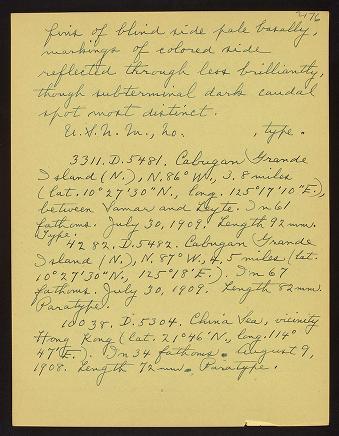 2176
fins of blind side pale basally,
markings of colored side
reflected through less brilliantly,
though subterminal dark caudal
spot most distinct.
U.S.N.M., no. , type.
3311. D. 5481. Cabugan Grande
Island (N.), N. 86° W., 3.8 miles
(lat. 10° 27' 30" N., long. 125° 17' 10" E.),
between Samar and Leyte. In 61
fathoms. July 30, 1909. Length 92 mm.
Type.
4282. D. 5482. Cabugan Grande
Island (N.), N. 87° W., 4.5 miles (lat.
10° 27' 30" N., 125° 18' E.). In 67
fathoms. July 30, 1909. Length 82 mm.
Paratype.
10038. D. 5304. China Sea, vicinity
Hong Kong (lat. 21° 46' N., long. 114°
47' E.). In 34 fathoms. August 9,
1908. Length 72 mm. Paratype.